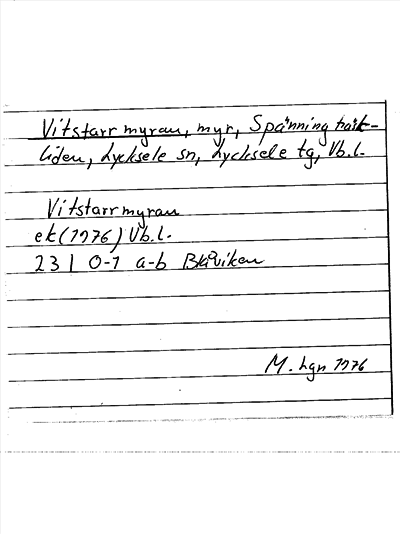 Vitstarrmyran, myr, Spänningträsk-
liden, Lycksele sn, Lycksele tg, Vb.l.
Vitstarrmyran
ek (1976) Vb.l.
23 I 0-1 a-b Blåviken
M. Lgn 1976